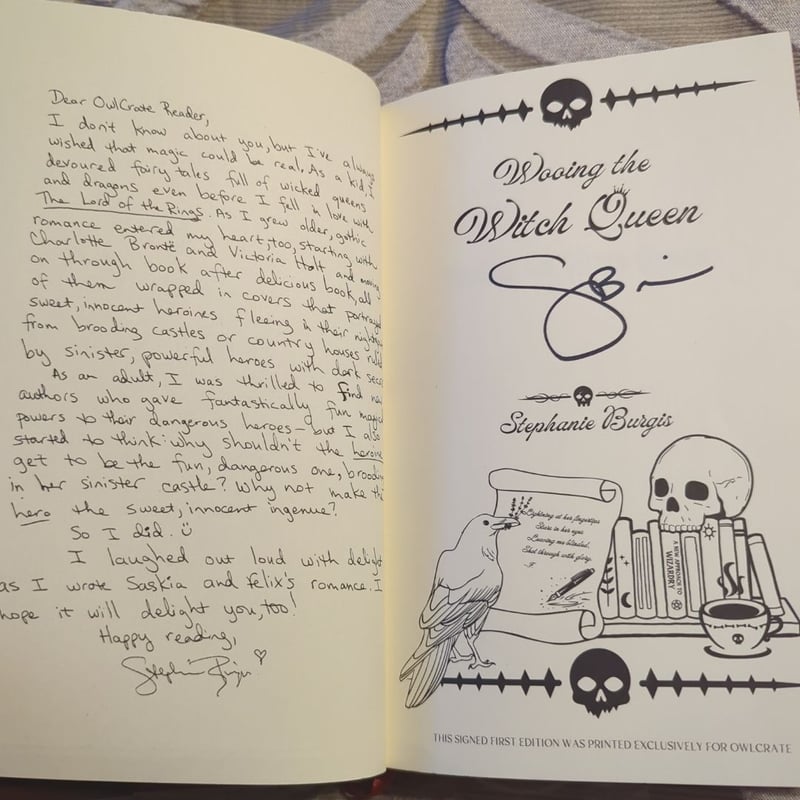 Dear OwlCrate Reader,
I don't know about you, but I've always
wished that magic could be real. As a kid, I
devoured fairy tales full of wicked queens
and dragons even before I fell in love with
The Lord of the Rings. As I grew older, gothic
romance entered my heart, too, starting with
Charlotte Brontë and Victoria Holt and moving
on through book after delicious book, all
of them wrapped in covers that portrayed
sweet, innocent heroines fleeing in their
from brooding castles or country houses
by sinister, powerful heroes with dark
As an adult, I was thrilled to find new
authors who gave fantastically fun
powers to their dangerous heroes - but I also
started to think: why shouldn't the heroine
get to be the fun, dangerous one, brooding
in her sinister castle? Why not make the
hero the sweet, innocent ingenue?
So I did. ü
I laughed out loud with delight
as I wrote Saskia and Felix's romance. I
hope it will delight you, too!
Happy reading,
Stephanie Burgis ♡
Wooing the
Witch Queen
SBurgis
Stephanie Burgis
Lightning at her fingertips
Stars in her eyes
Leaving me blinded,
Shot through with glory.
F
A NEW APPROACH TO
WIZARDRY
THIS SIGNED FIRST EDITION WAS PRINTED EXCLUSIVELY FOR OWLCRATE